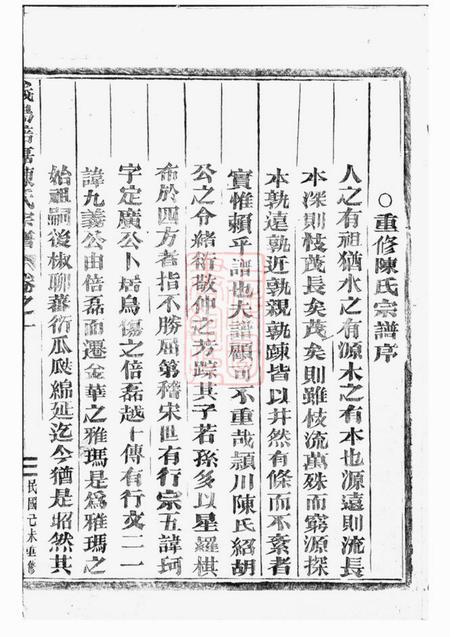 ○重修陳氏宗譜序
人之有祖猶水之有源木之有本也源遠則流長
本深則枝茂長矣茂矣則雖枝流萬殊而窮源探
本孰遠孰近孰親孰踈皆以井然有條而不紊者
實惟賴乎譜也夫譜顧可不重哉潁川陳氏紹胡
公之令緒衍敬仲之芳踪其子若孫多以星羅棋
布於四方者指不勝屈第稽宋世有行宗五諱珂
字定廣公卜居烏傷之倍磊越十傳有行文二一
諱九義公由倍磊而遷金華之雅瑪是爲雅瑪之
始祖嗣後椒聊蕃衍瓜瓞綿延迄今猶是昭然其
陳氏宗譜 卷之一
民國己未重修